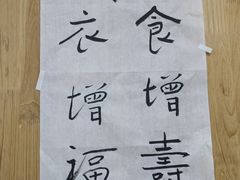 食增壽
衣增福